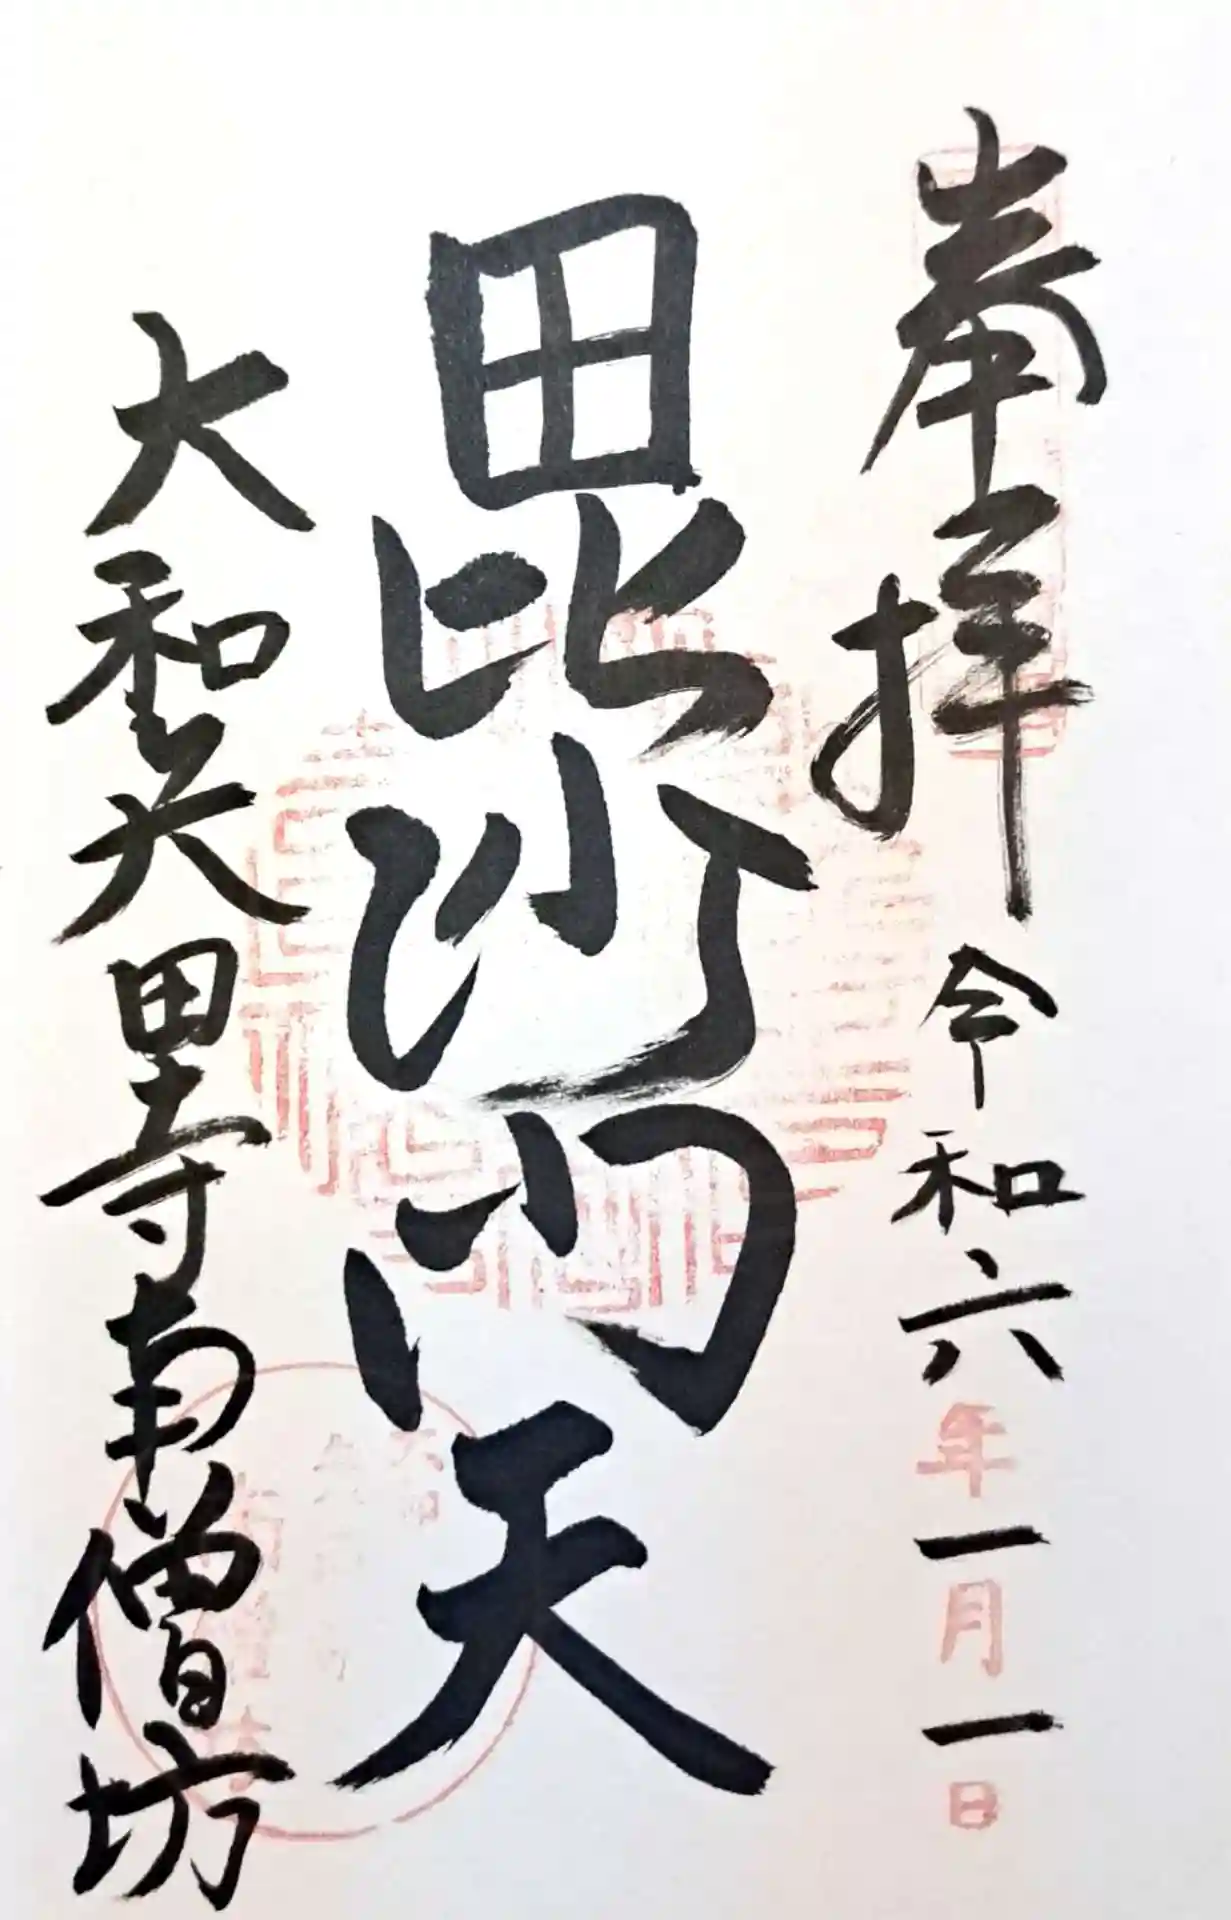 奉拝 令和六年一月一日
毘沙門天
大和矢田寺南僧坊